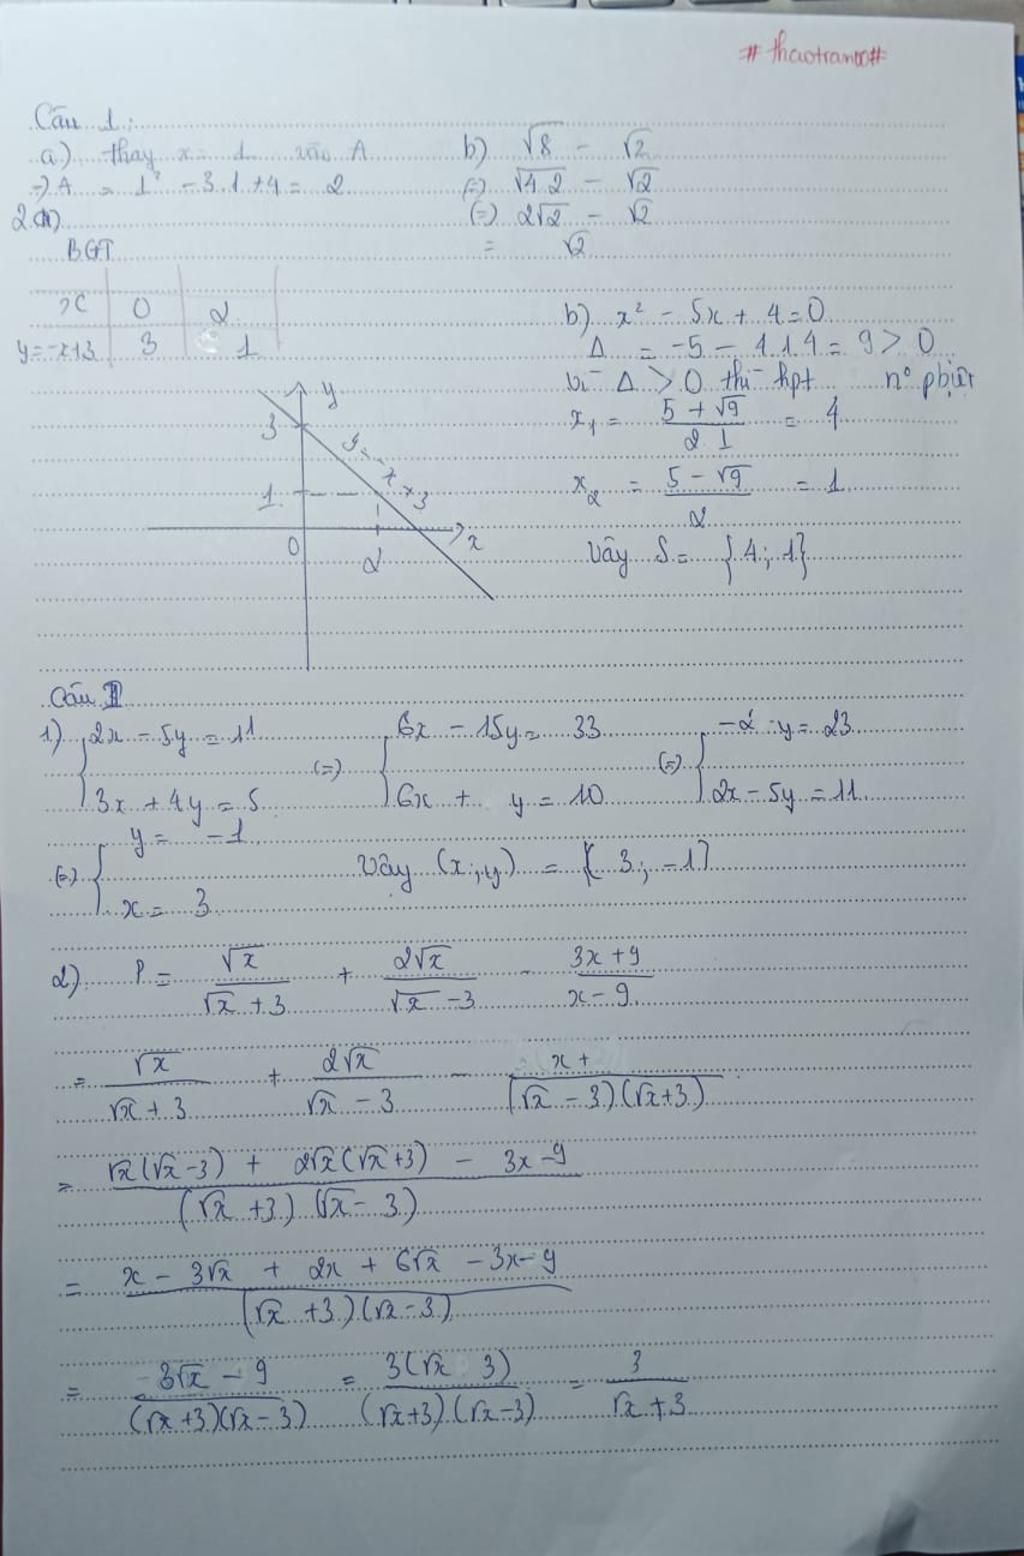 # thaotran00#
Câu 1:
a) thay x = 1 vào A
=> A = 1² - 3.1 + 4 = 2
b) √8 - √2
(=) √4.2 - √2
(=) 2√2 - √2
= √2
2.a)
BGT
x 0 2
y=-x+3 3 1
y
3
y = -x + 3
1
0 2 x
b) x² - 5x + 4 = 0
Δ = -5 - 4.1.4 = 9 > 0
Vì Δ > 0 thì hpt n° pbiệt
x₁ = (5 + √9)/(2.1) = 4
x₂ = (5 - √9)/2 = 1
Vậy S = {4; 1}
Câu II
1) { 2x - 5y = 11 (=) { 6x - 15y = 33 (=) { -2 y = 23
3x + 4y = 5 6x + y = 10 2x - 5y = 11
(=) { y = -1
x = 3
Vậy (x; y) = { 3; -1}
2) P = √x/(√x + 3) + 2√x/(√x - 3) - (3x + 9)/(x - 9)
= √x/(√x + 3) + 2√x/(√x - 3) - x +/(√x - 3)(√x + 3)
= (√x(√x - 3) + 2√x(√x + 3) - 3x - 9)/((√x + 3)(√x - 3))
= (x - 3√x + 2x + 6√x - 3x - 9)/((√x + 3)(√x - 3))
= (3√x - 9)/((√x + 3)(√x - 3)) = 3(√x 3)/((√x + 3)(√x - 3)) = 3/(√x + 3)